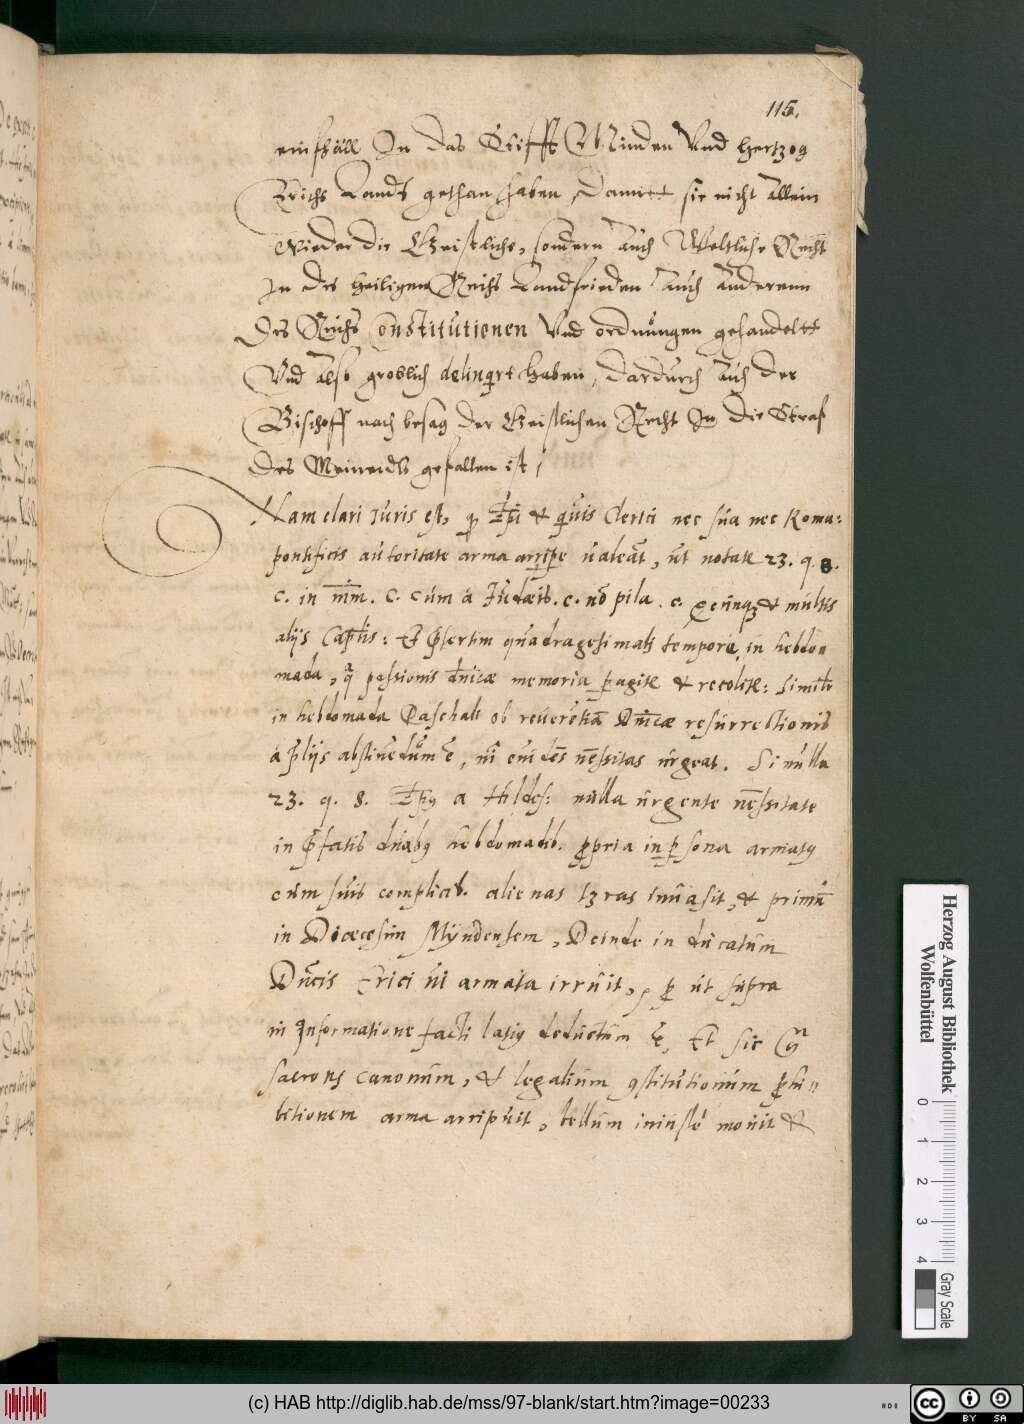 115.
einfhäll In das Stifft Minden Vnd Hertzog
Erichs Landt gethan haben, Damitt sie nicht Allein
wieder die Geistliche, sondern Auch Weltliche Recht
In des heiligen Reichs Landfrieden Auch Anderenn
Des Reichs Constitutionen Vnd ordnungen gehandeltt
Vnd Also groblich delinqrt Haben, Dardurch Auch der
Bischoff nach besag der Geistlichen Recht In die Straf
des Meineidts gefallen ist /
Nam clari Juris est, Epi & quis Clerici nec sua nec Roma:
pontificis autoritate arma arripe ualeāt, ut notatr 23. q. 8.
c. in mm. c. cum a Judæis. c. nō pila. c. & multis
alijs Captis: Et pserti quadragesimali tempore, in hebdom
mada, q passionis dnicæ memoria pagitr & recolitr: Similr
in hebdomada Paschali ob reuerētiā Dnicæ resurrectionis
a plijs abstinēdum ē, ni euidēs nēssitas urgeat. Si nulla
23. q. 8. Eps a Hildes: nulla urgente nēssitate
in pfatis duabs hebdomadib. propria in psona armats
cum suis complicib. alienas trras inuasit, & primū
in Diœcesim Myndensem, Deinde in ducatum
Ducis Erici ui armata irruit, ut supra
in Informatione facti latis deductum ē, Et sic
sacrors canonum, & legalium 9stitutionum phi„
bitionem arma arripuit, bellum iniustè mouit &
Herzog August Bibliothek
Wolfenbüttel
0
1
2
3
4
Gray Scale
(c) HAB http://diglib.hab.de/mss/97-blank/start.htm?image=00233
cc
BY SA